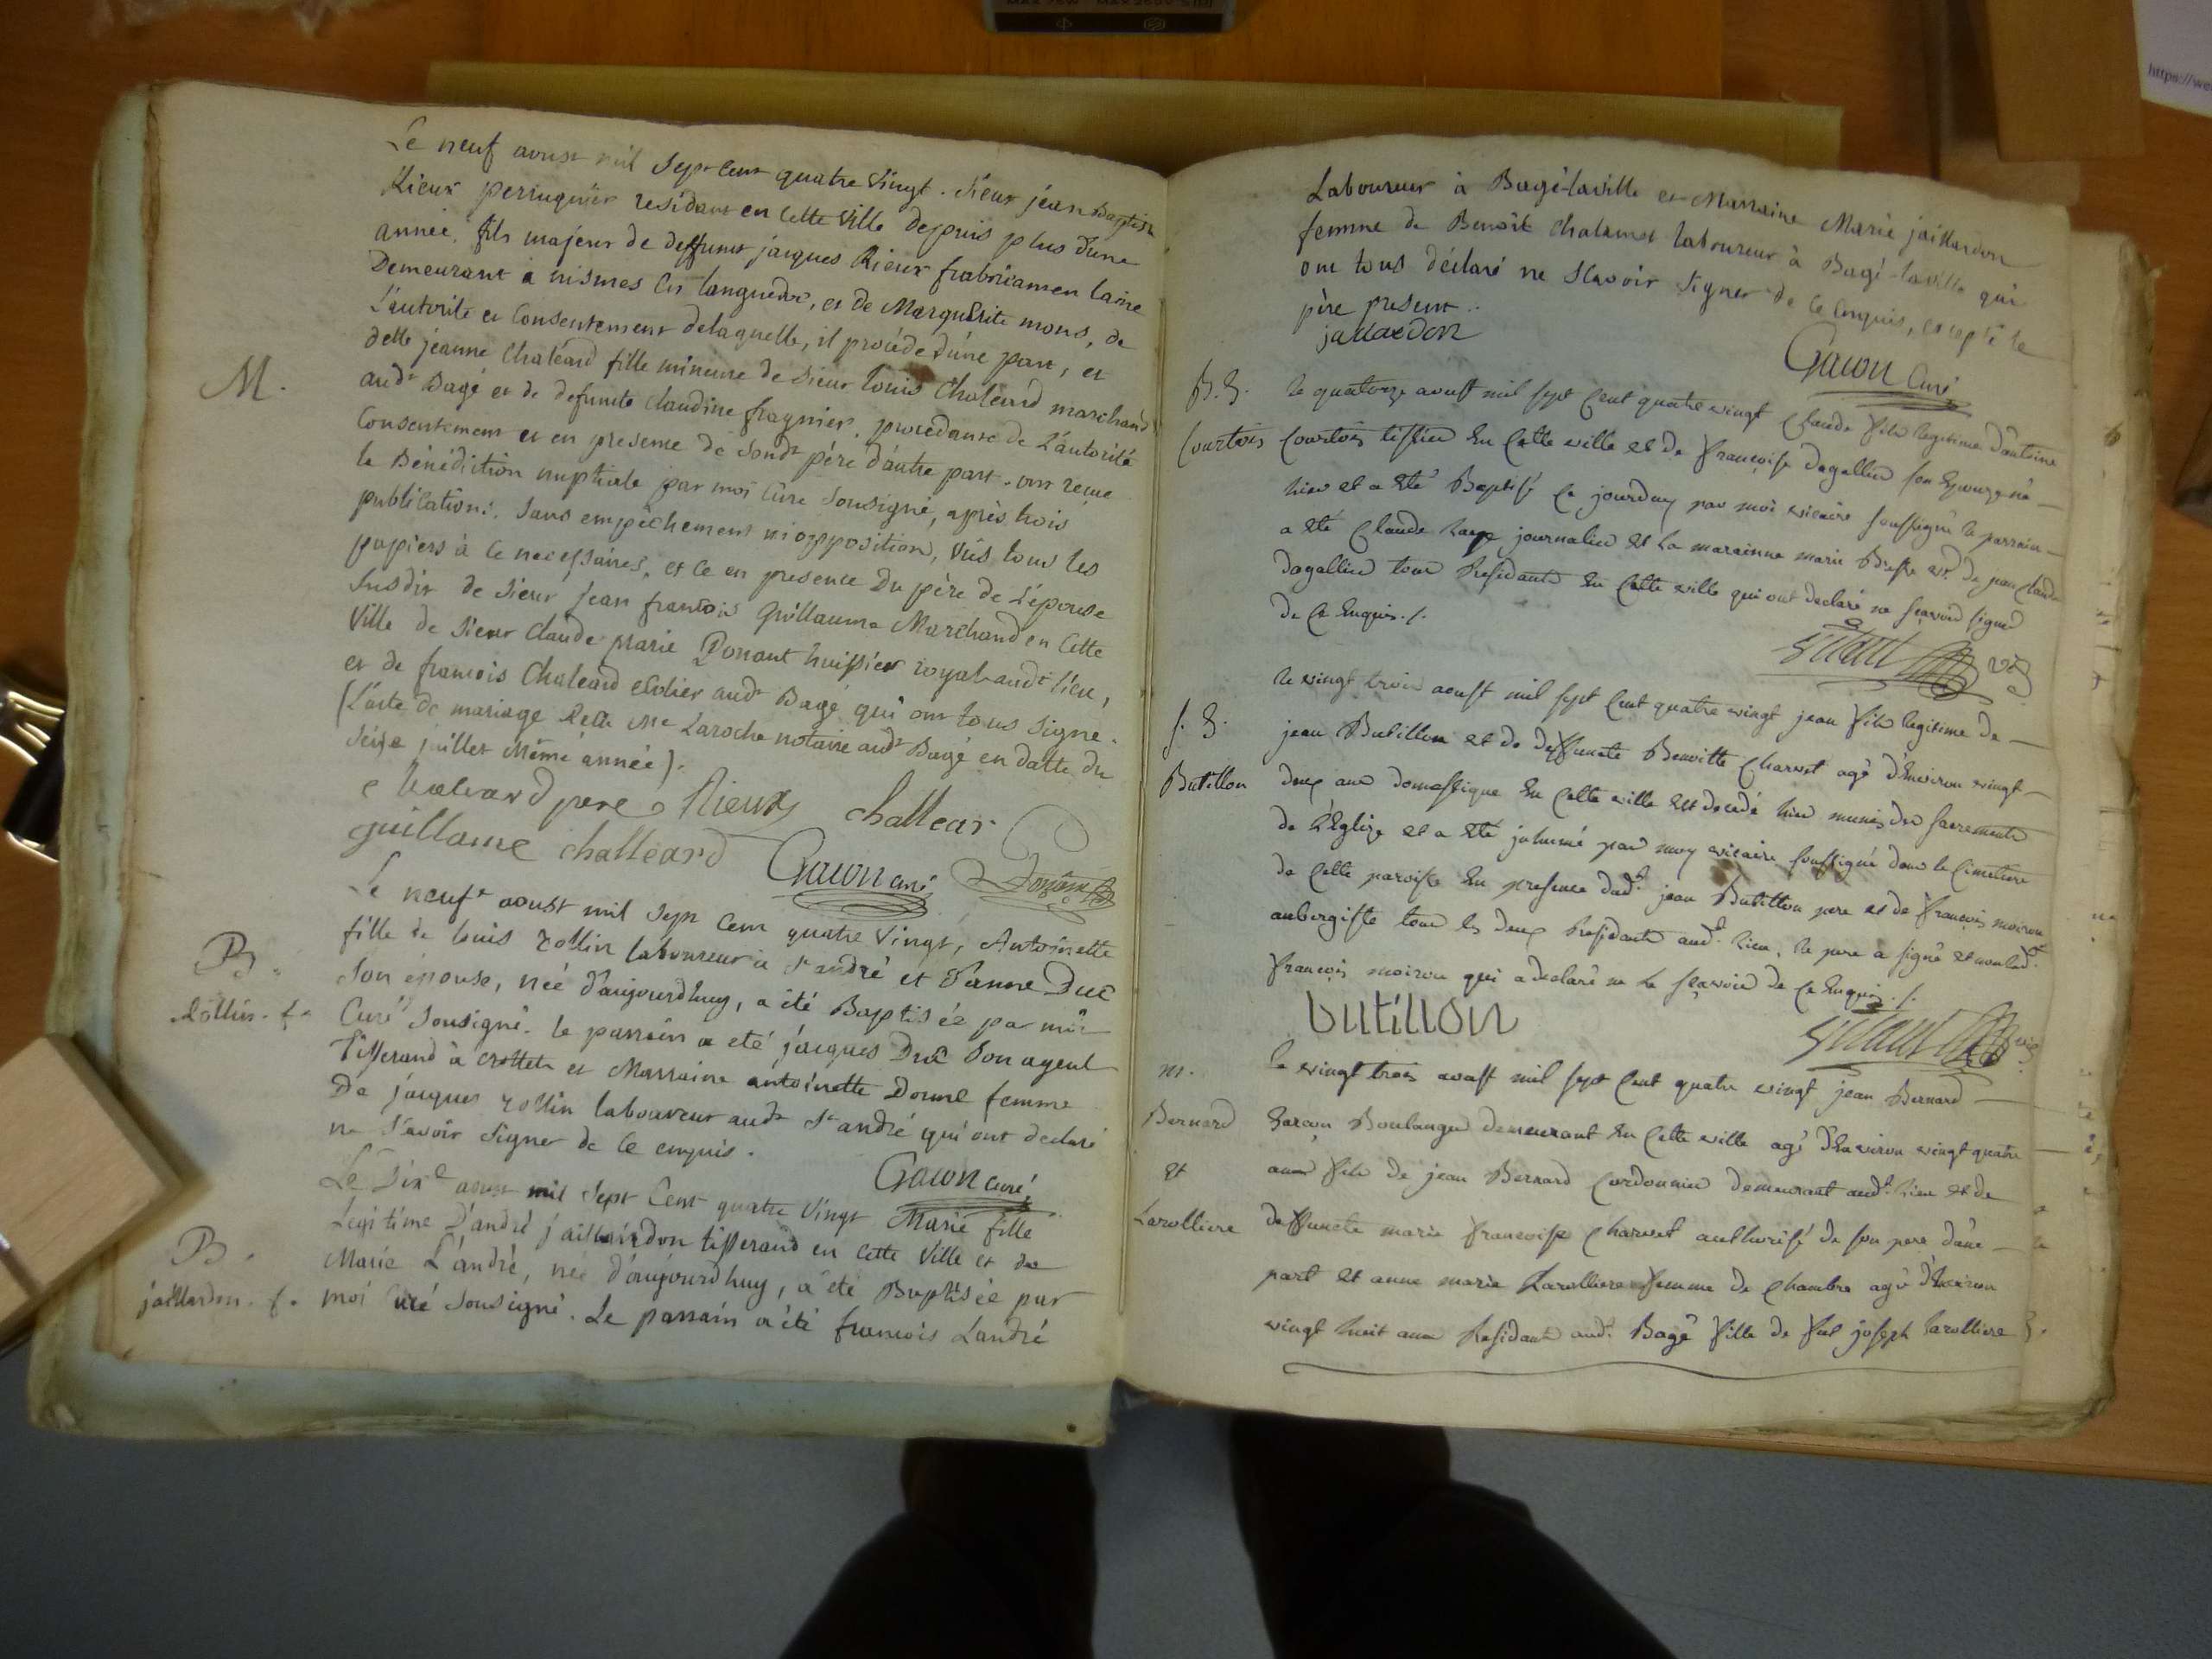 Le neuf aoust mil Sept cent quatre vingt. Sieur jean Baptiste
Rieux perruquier residant en cette ville depuis plus d'une
année, fils majeur de deffunt jacques Rieux fabricant en laine
Demeurant à nismes en languedoc, et de Marguerite mons, de
L'autorité et Consentement delaquelle, il procéde d'une part, et
delle jeanne Chaléard fille mineure de Sieur louis Chaleard marchand
M.
audt Bagé et de defunte claudine fragnier, procedante de L'autorité
Consentement et en presence de Sondt père d'autre part. ont reçue
la Bénédiction nuptiale par moi Curé Sousigné, après trois
publications, Sans empêchement ni opposition, vûs tous les
papiers à ce necessaires, et ce en presence Du père de L'épouse
Susdit de Sieur jean françois Guillaume Marchand en Cette
Ville de Sieur Claude Marie Ponant huissier royal audt lieu,
et de françois Chaleard audt Bagé qui ont tous Signe.
(L'acte de mariage Me Laroche notaire audt Bagé en datte du
Seize juillet Même année).
chaleard pere Rieux challear
guillame challéard Gacon curé
Le neuft aoust mil Sept Cent quatre Vingt, Antoinette
fille de louis rollin laboureur à St andré et d'anne Duc
B.
Son épouse, neé d'aujourdhuy, a été Baptisée par moi
Rollin. f.
Curé Sousigné. le parrain a eté jacques Duc Son ayeul
Tisserand à crottet et Marraine antoinette femme
De jacques rollin laboureur audt St andré qui ont declaré
ne Savoir Signer de Ce enquis.
Gacon curé
Le Dix aoust mil Sept Cent quatre Vingt Marie fille
Legitime D'andré jaillardon tisserand en cette ville et de
B.
Marie Landré, neé d'aujourdhuy, a été Baptisée par
jaillardon. f.
moi curé Sousigné. Le parrain a été françois Landré
Laboureur à Bagé-laville et Marraine Marie jaillardon
femme de Benoit Chalamel laboureur à Bagé-laville qui
ont tous déclaré ne Scavoir Signer de Ce enquis, excepté le
père present.
jallardon
Gacon Curé
B. G.
le quatorze aoust mil sept Cent quatre vingt Claude fils legitime d'antoine
Courtois
Courtois tissier En Cette ville et de françoise dagallier son Epouze né
hier et a Eté Baptisé Ce jourduy par moi vicaire soussigné le parrain
a eté Claude journalier Et La marainne marie ve de jean Claude
dagallier tous Residants En Cette ville qui ont declaré ne sçavoir signer
de Ce Enquis./.
vic
le vingt trois aoust mil sept Cent quatre vingt jean fils legitime de
S. G.
jean Butillon et de deffuncte Benoitte Charvet agé d'Environ vingt
Butillon
deux ans domestique En Cette ville Est decedé hier munis des sacrements
de L'Eglize et a Eté jnhumé par moy vicaire soussigné dans le Cimetiere
de Cette paroisse En presence dudt jean Butillon pere et de françois moiron
aubergiste tous les deux Residants audt lieu, le pere a signé et non ledt
françois moiron qui a declaré ne Le sçavoir de Ce Enquis./.
butillon
vic
m.
le vingt trois aoust mil sept Cent quatre vingt jean Bernard
Bernard
Garçon Boulanger demeurant En Cette ville agé d'Environ vingt quatre
et
ans fils de jean Bernard Cordonnier demeurant audt lieu et de
Larolliere
deffuncte marie françoise Charvet authorisé de son pere d'une
part et anne marie Larolliere femme de Chambre agée d'Environ
vingt huit ans Residante audt Bagé fille de feu joseph larolliere